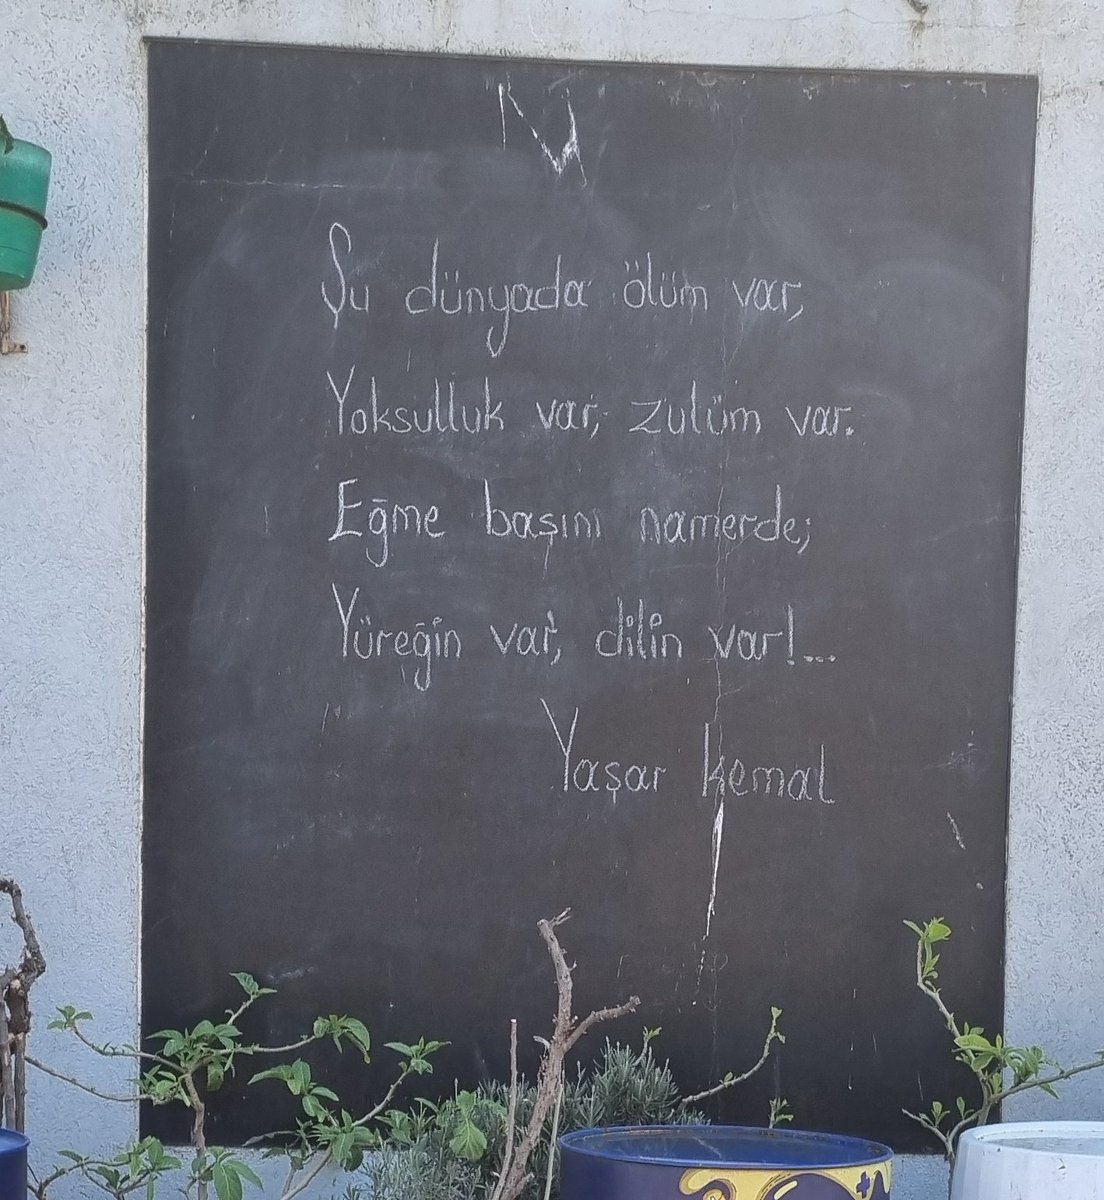 Şu dünyada ölüm var,
Yoksulluk var, zulüm var.
Eğme başını namerde;
Yüreğin var, dilin var!...
Yaşar Kemal